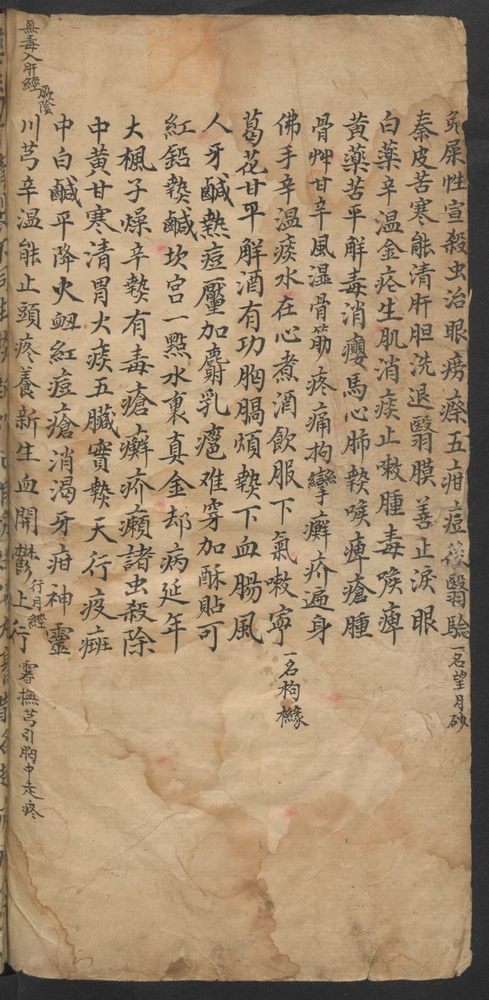 兎屎性宣殺虫治眼痨瘵五疳痘後翳驗 一名望月砂
秦皮苦寒能清肝胆洗退翳膜善止淚眼
白藥辛温金疮生肌消痰止嗽腫毒喉痺
黄藥苦平解毒消癭馬心肺䓺喉痺瘡腫
骨碎甘辛風湿骨筋疼痛拘攣癬疥遍身
佛手辛温痰水在心煮酒飲服下氣嗽寜 一名枸櫞
葛花甘平解酒有功胸膈煩熱下血腸風
人牙鹹熱痘靨加麝乳癰难穿加酥貼可
紅鉛熱鹹坎宫一點水裏真金却病延年
大楓子燥辛熱有毒瘡癬疥癩諸虫殺除
中黄甘寒清胃火痰五臓實熱天行疫癍
中白鹹平降火衂紅痘瘡消渴牙疳神靈
川芎辛温能止頭疼養新生血開鬱上行 行月經
無毒入肝經厥陰
撫芎引胸中走疼